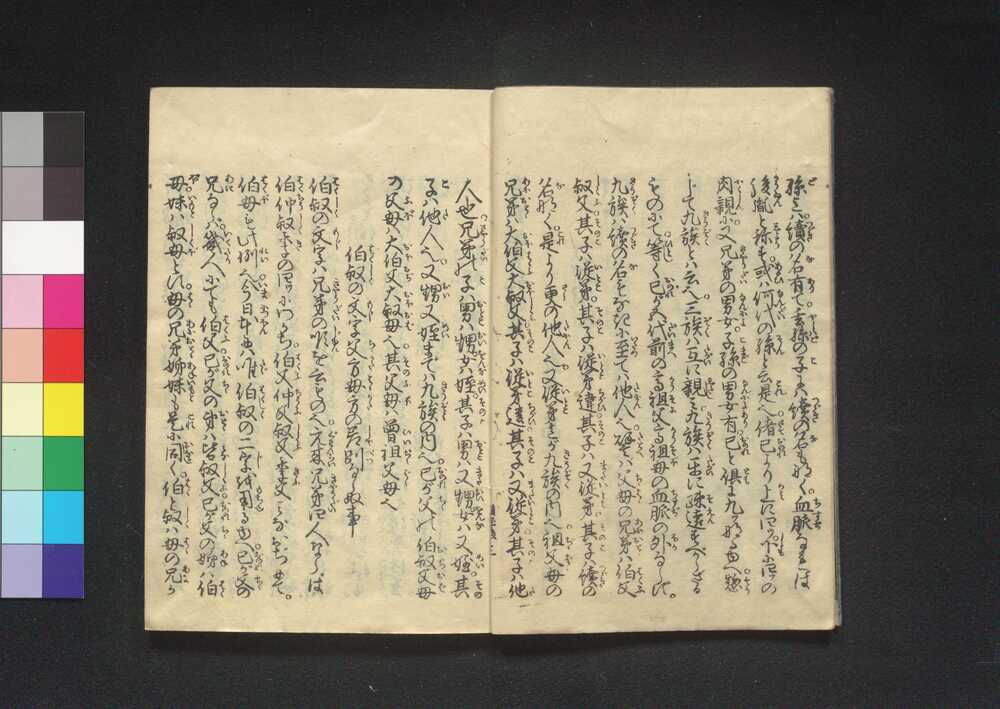 孫迄ハ續の名有て玄孫の子ハ續の名もなく血脈なれは
後胤と称す或ハ何代の孫と云是へ偖己より上に四ツ下に四ツの
肉親に又兄弟の男女子孫の男女有己と倶に九ツなる由へ惣
して九族とハ云へ三族ハ互に親み九族ハ出に疎遠すべからざる
ものにて等く己が五代前の高祖父高祖母の血脈の外ならず
九族ハ續の名をなすに至てハ他人へ譬ハ父母の兄弟ハ伯父
叔父其子ハ従弟其子ハ従弟違其子ハ又従弟其子ハ續の
名なく是より更の他人へ又従弟までハ九族の内へ祖父母の
兄弟ハ大伯父大叔父其子ハ従弟違其子ハ又従弟其子ハ他
人也兄弟の子ハ男ハ甥女ハ姪其子ハ男ハ又甥女ハ又姪其
子ハ他人へ又甥又姪までハ九族の内へ己が父の伯叔父母
の父母ハ大伯父大叔母へ其父母ハ曽祖父母へ
伯叔の文字父方母方の差別なき事
伯叔の文字ハ兄弟の順を云ものへ元来兄弟四人なれは
伯仲叔季の四ツに分ち伯父仲父叔父季父となふる也
伯母も此例へ今日本邦ハ唯伯叔の二字を用る由己が父の
兄ならハ幾人にても伯父己が父の弟ハ皆叔父己が父の姉ハ伯
母妹ハ叔母とす母の兄弟姉妹も是に同く伯と叔ハ母の兄か